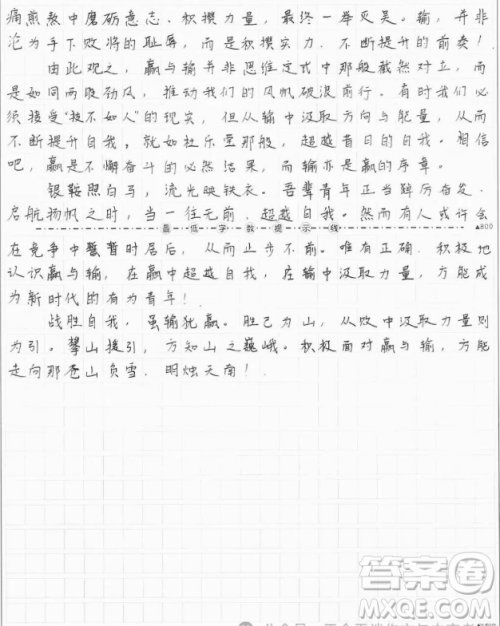 痛煎熬中磨砺意志、积攒力量，最终一举灭吴。输，并非
沦为手下败将的耻辱，而是积攒实力、不断提升的前奏！
由此观之，赢与输并非思维定式中那般截然对立，而
是如同两股劲风，推动我们的风帆破浪前行。有时我们必
须接受“技不如人”的现实，但从输中汲取方向与能量，从而
不断提升自我，就如杜乐堂那般，超越昔日的自我。相信
吧，赢是不懈奋斗的必然结果，而输亦是赢的序章。
银鞍照白马，流光映铁衣。吾辈青年正当踔厉奋发、
启航扬帆之时，当一往无前，超越自我。然而有人或许会
最低字数提示线 ▲800
在竞争中暂时居后，从而止步不前。唯有正确、积极地
认识赢与输，在赢中超越自我，在输中汲取力量，方能成
为新时代的有为青年！
战胜自我，虽输犹赢。胜己为山，从败中汲取力量则
为引。攀山援引，方知山之巍峨。积极面对赢与输，方能
走向那苍山负雪，明烛天南！
答案圈
MXQE.COM